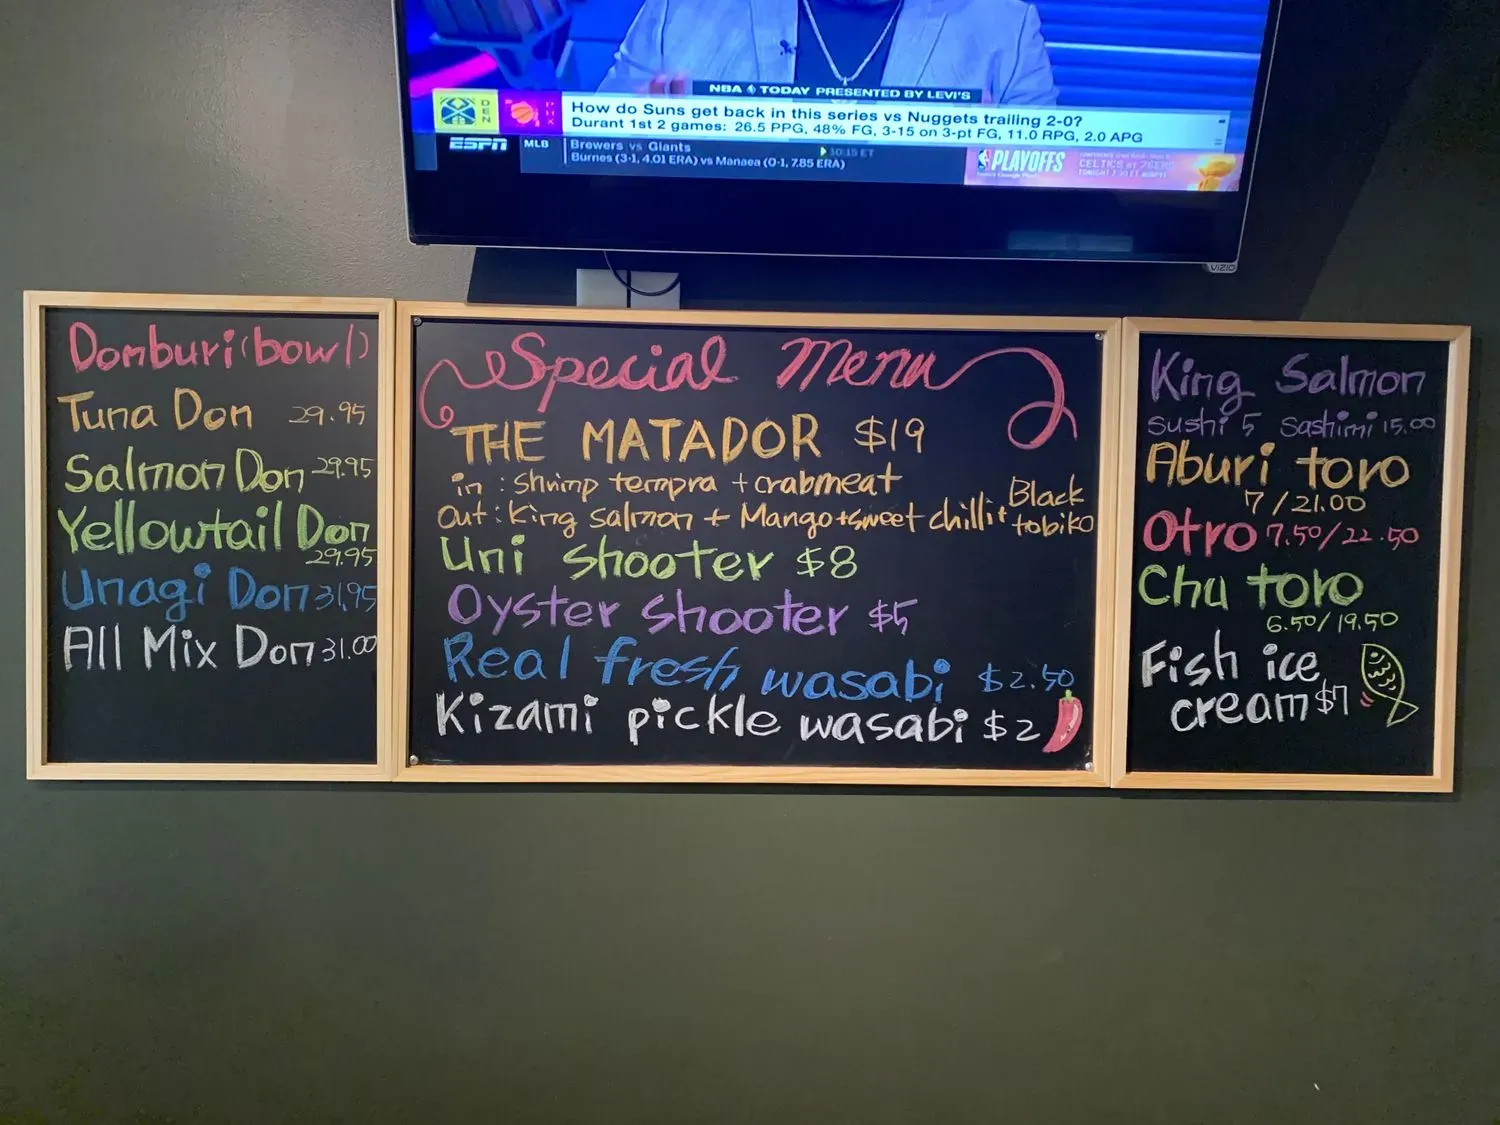 NBA TODAY PRESENTED BY LEVI'S
DEN
PHX
How do Suns get back in this series vs Nuggets trailing 2-0?
Durant 1st 2 games: 26.5 PPG, 48% FG, 3-15 on 3-pt FG, 11.0 RPG, 2.0 APG
ESPN
MLB
Brewers vs Giants
10:15 ET
Burnes (3-1, 4.01 ERA) vs Manaea (0-1, 7.85 ERA)
NBA
PLAYOFFS
CELTICS at 76ERS
VIZIO
Donburi (bowl)
Tuna Don 29.95
Salmon Don 29.95
Yellowtail Don
29.95
Unagi Don 31.95
All Mix Don 31.00
Special Menu
THE MATADOR $19
in : shrimp tempra + crabmeat
Out : King salmon + Mango + sweet chilli + Black
tobiko
Uni shooter $8
Oyster shooter $5
Real fresh wasabi $2.50
Kizami pickle wasabi $2
King Salmon
Sushi 5 Sashimi 15.00
Aburi toro
7 / 21.00
Otro 7.50/22.50
Chu toro
6.50/19.50
Fish ice
cream $7